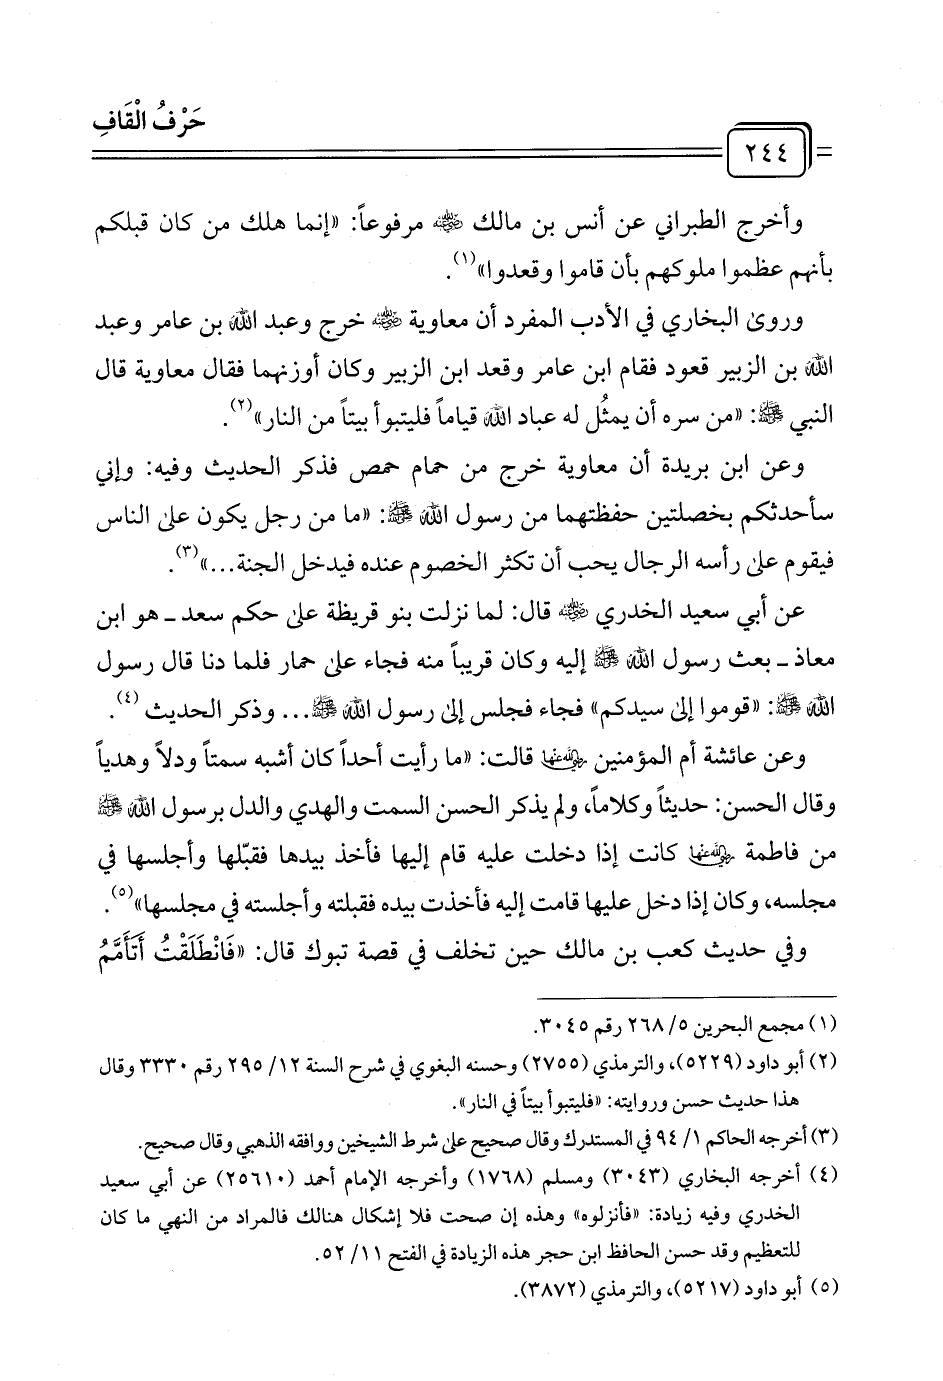 حَرْفُ الْقَافِ
٢٤٤
وأخرج الطبراني عن أنس بن مالك رضي الله عنه مرفوعاً: «إنما هلك من كان قبلكم
بأنهم عظموا ملوكهم بأن قاموا وقعدوا»(١).
وروىٰ البخاري في الأدب المفرد أن معاوية رضي الله عنه خرج وعبد الله بن عامر وعبد
الله بن الزبير قعود فقام ابن عامر وقعد ابن الزبير وكان أوزنهما فقال معاوية قال
النبي ﷺ: «من سره أن يمثُل له عباد الله قياماً فليتبوأ بيتاً من النار»(٢).
وعن ابن بريدة أن معاوية خرج من حمام حمص فذكر الحديث وفيه: وإني
سأحدثكم بخصلتين حفظتهما من رسول الله ﷺ: «ما من رجل يكون علىٰ الناس
فيقوم علىٰ رأسه الرجال يحب أن تكثر الخصوم عنده فيدخل الجنة...»(٣).
عن أبي سعيد الخدري رضي الله عنه قال: لما نزلت بنو قريظة علىٰ حكم سعد ـ هو ابن
معاذ ـ بعث رسول الله ﷺ إليه وكان قريباً منه فجاء علىٰ حمار فلما دنا قال رسول
الله ﷺ: «قوموا إلىٰ سيدكم» فجاء فجلس إلىٰ رسول الله ﷺ... وذكر الحديث (٤).
وعن عائشة أم المؤمنين رضي الله عنها قالت: «ما رأيت أحداً كان أشبه سمتاً ودلاً وهدياً
وقال الحسن: حديثاً وكلاماً، ولم يذكر الحسن السمت والهدي والدل برسول الله ﷺ
من فاطمة رضي الله عنها كانت إذا دخلت عليه قام إليها فأخذ بيدها فقبّلها وأجلسها في
مجلسه، وكان إذا دخل عليها قامت إليه فأخذت بيده فقبلته وأجلسته في مجلسها»(٥).
وفي حديث كعب بن مالك حين تخلف في قصة تبوك قال: «فَانْطَلَقْتُ أَتَأَمَّمُ
(١) مجمع البحرين ٥/ ٢٦٨ رقم ٣٠٤٥.
(٢) أبو داود (٥٢٢٩)، والترمذي (٢٧٥٥) وحسنه البغوي في شرح السنة ١٢/ ٢٩٥ رقم ٣٣٣٠ وقال
هذا حديث حسن وروايته: «فليتبوأ بيتاً في النار».
(٣) أخرجه الحاكم ١/ ٩٤ في المستدرك وقال صحيح علىٰ شرط الشيخين ووافقه الذهبي وقال صحيح.
(٤) أخرجه البخاري (٣٠٤٣) ومسلم (١٧٦٨) وأخرجه الإمام أحمد (٢٥٦١٠) عن أبي سعيد
الخدري وفيه زيادة: «فأنزلوه» وهذه إن صحت فلا إشكال هنالك فالمراد من النهي ما كان
للتعظيم وقد حسن الحافظ ابن حجر هذه الزيادة في الفتح ١١/ ٥٢.
(٥) أبو داود (٥٢١٧)، والترمذي (٣٨٧٢).